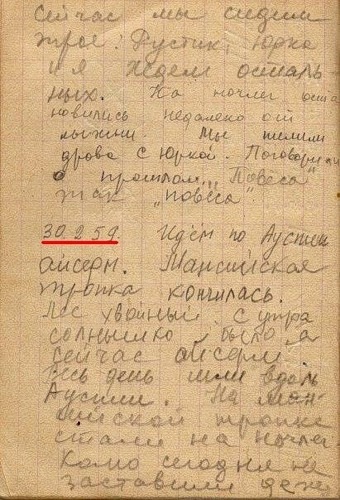 сейчас мы сидим
трое: Рустик, Юрка
и я ждем осталь-
ных. На ночлег оста
новились недалеко от
лыжни. Мы пилили
дрова с Юркой. Поговорили
о прошлом... Повеса
так "повеса"
30.2.59. Идем по Ауспии
айсерм. Мансийская
тропка кончилась.
Лес хвойный с утра
солнышко было, а
сейчас айсерм.
Весь день шли вдоль
Ауспии. На ман-
сийской тропке
стали на ночлег.
Колю сегодня не
заставили деже